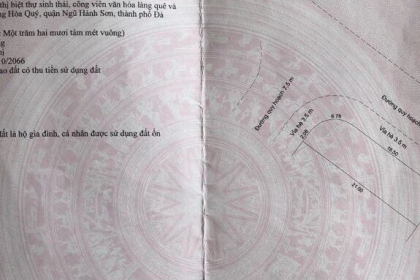 thị biệt thự sinh thái, công viên văn hóa làng quê và
ng Hòa Quý, quận Ngũ Hành Sơn, thành phố Đà
Một trăm hai mươi tám mét vuông)
0/2066
ao đất có thu tiền sử dụng đất
đất là hộ gia đình, cá nhân được sử dụng đất ổn
Đường quy hoạch 7.5 m
Vỉa hè 3.5 m
2.08
6.78
Đường quy hoạch
Vỉa hè 3.5 m
18.50
21.00